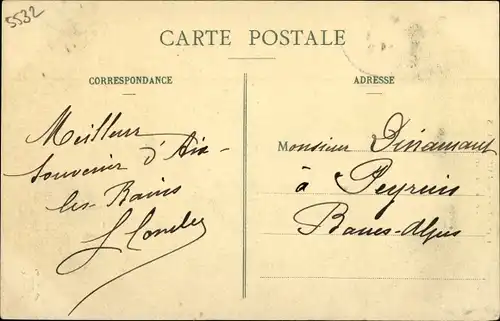 5532
CARTE POSTALE
CORRESPONDANCE
ADRESSE
Meilleur
souvenir d'Aix-
les-Bains
Monsieur
à Peyruis
Basses-Alpes